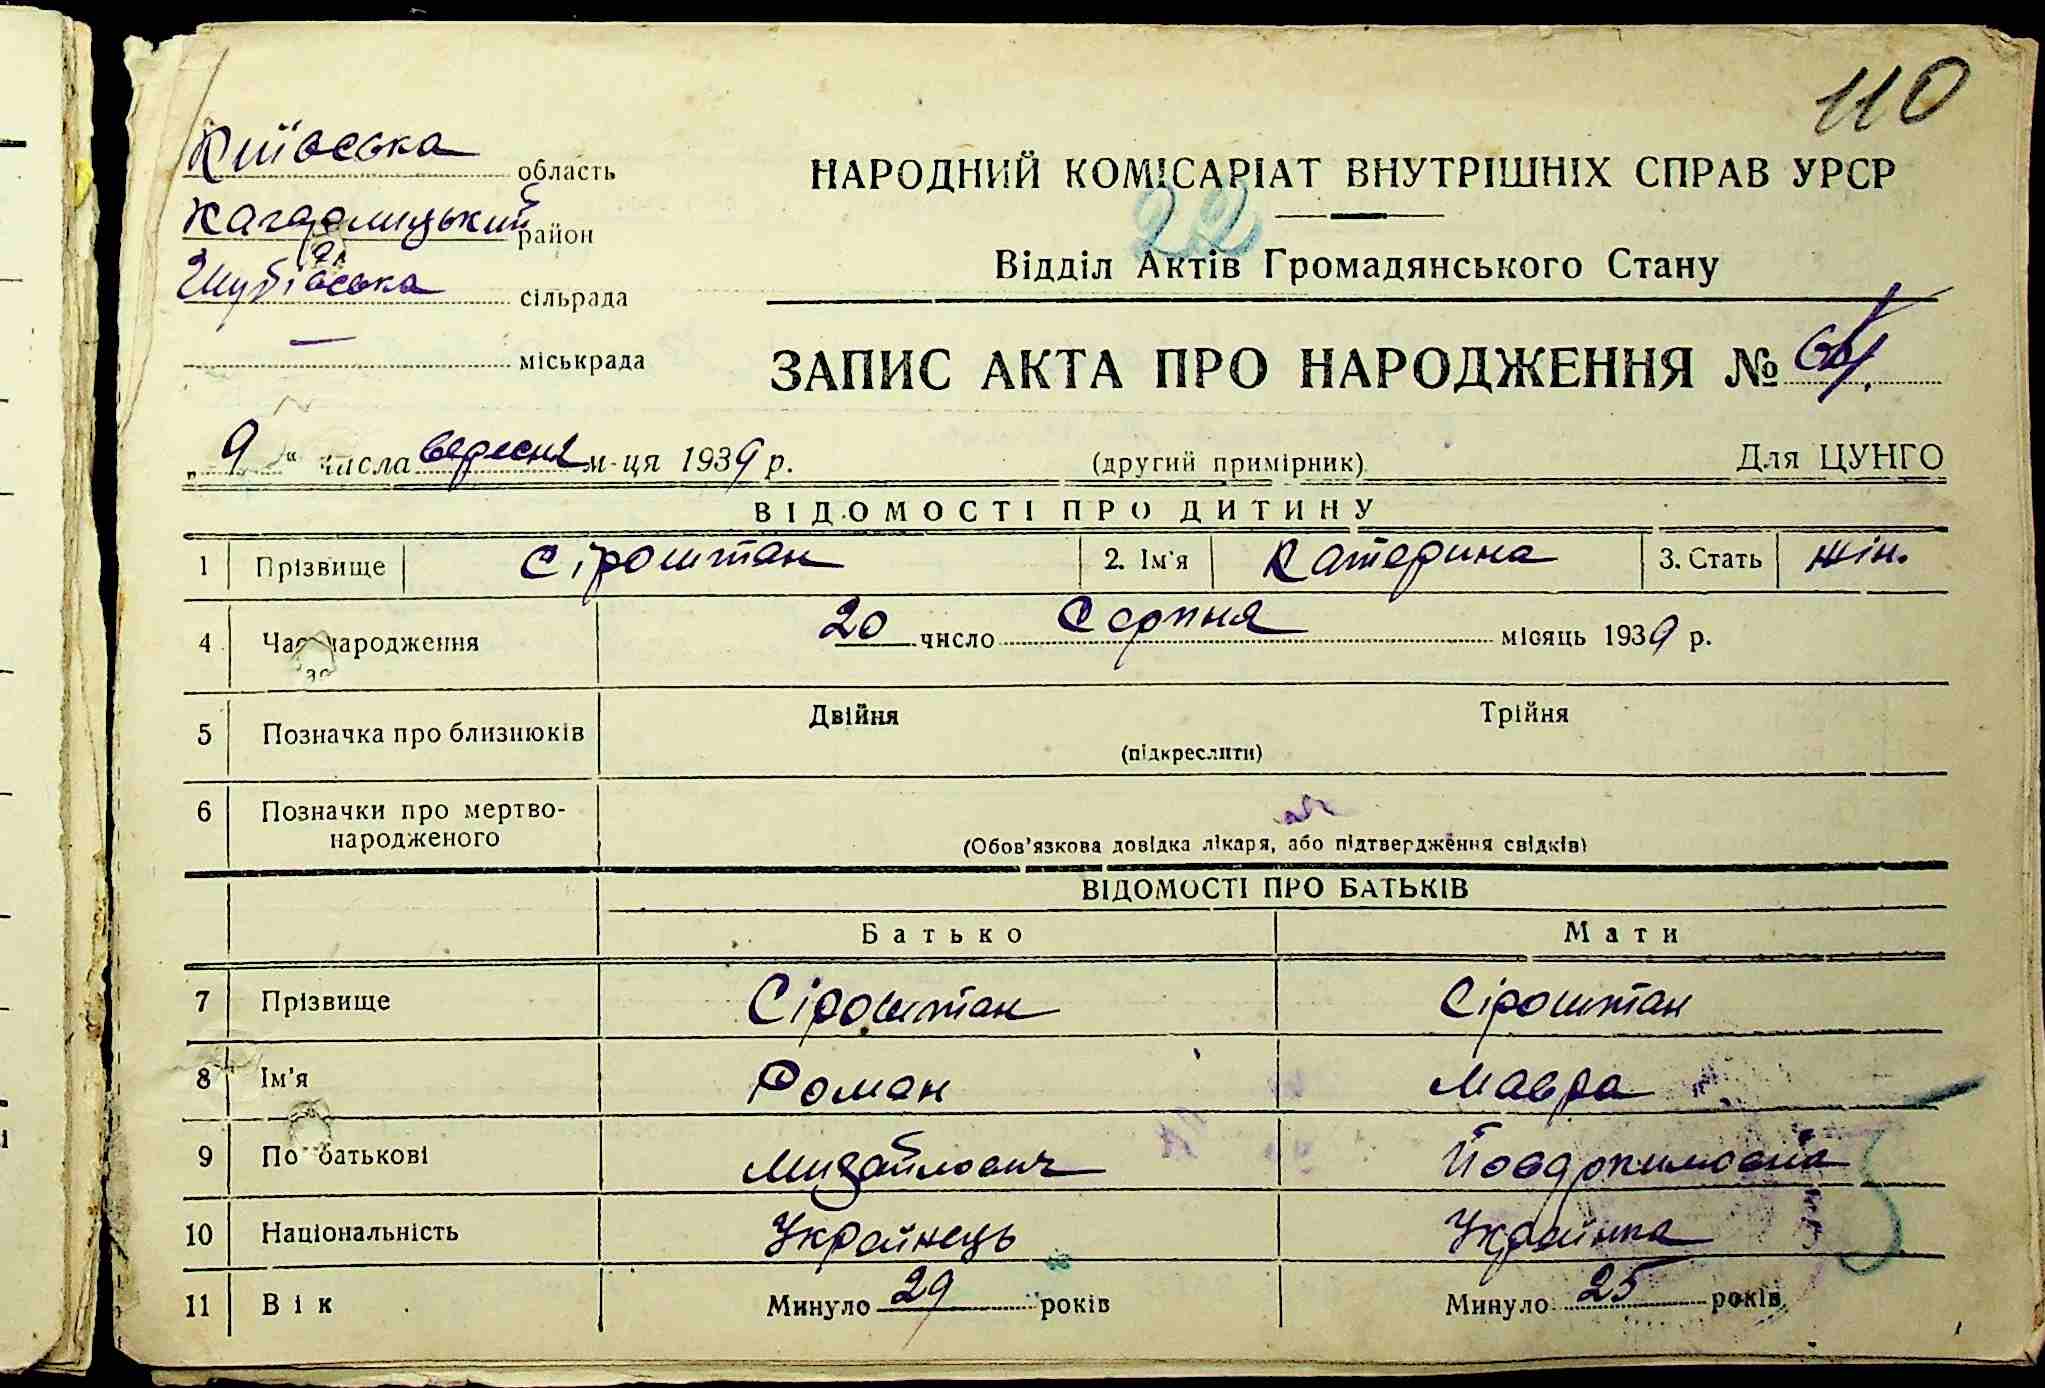 110
Київська область
Кагарлицький район
Шубівська сільрада
— міськрада
НАРОДНИЙ КОМІСАРІАТ ВНУТРІШНІХ СПРАВ УРСР
22
Відділ Актів Громадянського Стану
ЗАПИС АКТА ПРО НАРОДЖЕННЯ №
„ 9 “ числа вересня м-ця 1939 р. (другий примірник) Для ЦУНГО
ВІДОМОСТІ ПРО ДИТИНУ
1 Прізвище Сіроштан 2. Ім'я Катерина 3. Стать жін.
4 Час народження 20 число Серпня місяць 1939 р.
5 Позначка про близнюків Двійня Трійня
(підкреслити)
6 Позначки про мертво-
народженого
(Обов'язкова довідка лікаря, або підтвердження свідків)
ВІДОМОСТІ ПРО БАТЬКІВ
Батько Мати
7 Прізвище Сіроштан Сіроштан
8 Ім'я Роман Мавра
9 По батькові Михайлович Йовдокимовна
10 Національність Українець Українка
11 Вік Минуло 29 років Минуло 25 років